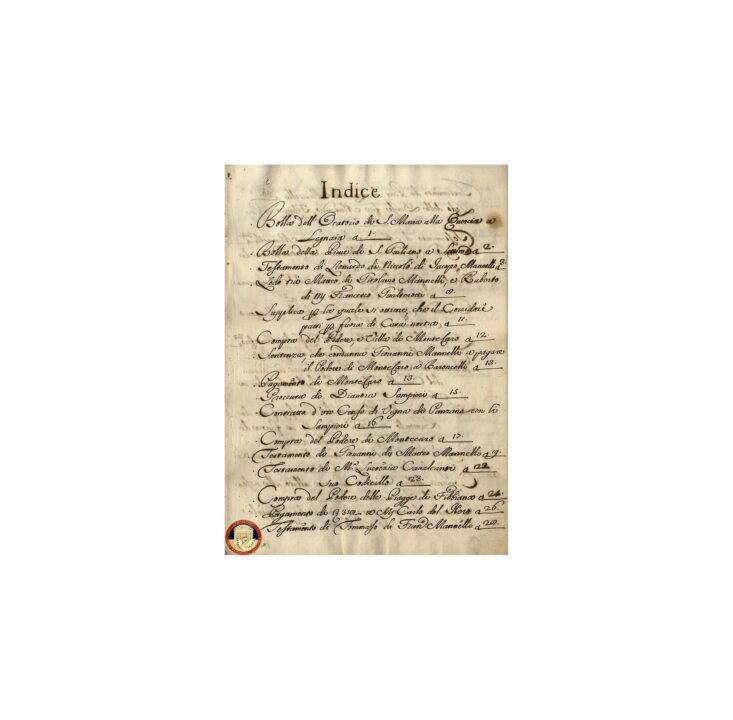 Indice
Bolla dell Oratorio di S. Maria alla Quercia a
Legnaia a 1.
Bolla della Pieve di S. Giuliano a a 2.
Testamento di Leonardo di Niccolò di Jacopo Mannelli a 2
Lodo tra Marco di Mannelli, e Ruberto
di My Francesco a 9.
Supplica p la quale si ottiene, che il Corridore
passi p fuora di Casa nostra, a 11.
Compra del Podere, e Villa di Montecaro a 12.
Sentenza, che condanna Giovanni Mannelli a pagare
il Podere di Montecaro a Baroncelli a 13.
Pagamento di Montecaro a 13.
Procura di Dianora Sampieri a 15.
Contratto d'un Censo di Vigna da Panzano con li
Sampieri a 16.
Compra del Podere di Montecaro a 17.
Testamento di Giovanni di Matteo Mannelli a 19.
Testamento di Mª Lucrezia Cavalcanti a 22.
Suo Codicillo a 23.
Compra del Podere delle Piagge di Fabbiano a 24.
Pagamento di a My Carlo del a 26.
Testamento di Tommaso di Franc Mannelli a 28.